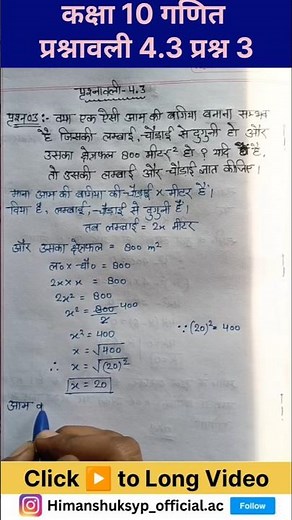 कक्षा 10 गणित
प्रश्नावली 4.3 प्रश्न 3
प्रश्नावली-4.3
प्रश्न03:- क्या एक ऐसी आम की बगिया बनाना सम्भव
है जिसकी लम्बाई, चौड़ाई से दुगुनी हो और
उसका क्षेत्रफल 800 मीटर² हो ? यदि है,
तो उसकी लम्बाई और चौड़ाई ज्ञात कीजिए।
माना आम की बगिया की चौड़ाई x मीटर है।
दिया है, लम्बाई, चौड़ाई से दुगुनी है।
तब लम्बाई = 2x मीटर
और उसका क्षेत्रफल = 800 m²
ल० x चौ० = 800
2x × x = 800
2x² = 800
x² = 800/2 400
x² = 400 ∵ (20)² = 400
x = √400
∴ x = √(20)²
x = 20
आम
Click ▶ to Long Video
Himanshuksyp_official.ac Follow